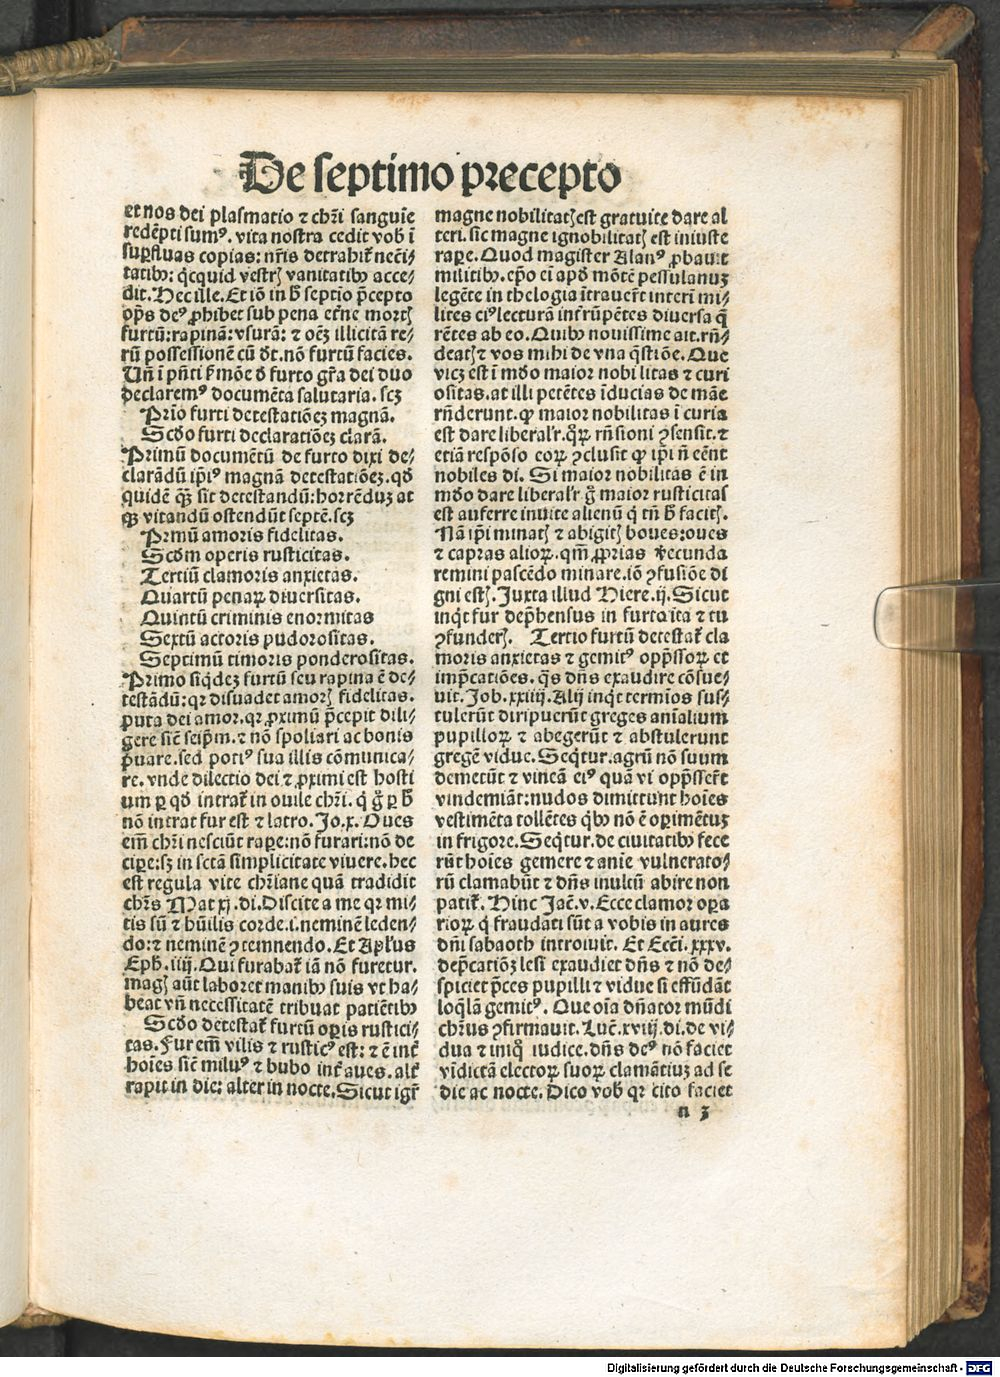 De septimo precepto
et nos dei plasmatio ⁊ chr̄i sanguīe
redēpti sumꝰ. vita nostra cedit vob̄ ī
suꝑfluas copias: nr̄is detrahit̄ necc̄i⸗
tatibꝫ: qͥcquid vestrꝭ vanitatibꝫ acce⸗
dit. Hec ille. Et iō in h̄ septīo p̄cepto
op̄s deꝰ ꝓhibet sub pena et̄ne mortꝭ
furtū: rapinā: vsurā: ⁊ oēꝫ illicitā re⸗
rū possessionē cū dt̄. nō furtū facies.
Un̄ ī pn̄ti ẜmōe ꝺ furto gr̄a dei duo
declaremꝰ documēta salutaria. scꝫ
Prīo furti detestatiōeꝫ magnā.
Scd̄o furti declaratiōeꝫ clarā.
Primū documētū de furto dixi de⸗
clarādū ip̄iꝰ magnā detestatiōeꝫ. qd̄
quidē qꝫ sit detestandū: horrēduꝫ at
qꝫ vitandū ostendūt septē. scꝫ
Prīmū amoris fidelitas.
Scd̄m operis rusticitas.
Tertiū clamoris anxietas.
Quartū penaꝝ diuersitas.
Quintū criminis enormitas
Sextū actoris pudorositas.
Septimū timoris ponderositas.
Primo siqͥdeꝫ furtū seu rapina ē de⸗
testādū: qꝛ disuadet amorꝭ fidelitas.
puta dei amor. qꝛ ꝓximū p̄cepit dili⸗
gere sic̄ seip̄m. ⁊ nō spoliari ac bonis
p̄uare. sed potiꝰ sua illis cōmunica⸗
re. vnde dilectio dei ⁊ ꝓximi est hosti
um ꝑ qd̄ intrat̄ in ouile chr̄i. qͥ g̊ ꝑ h̄
nō intrat fur est ⁊ latro. Jo. x. Oues
em̄ chr̄i nesciūt rapere: nō furari: nō de
cipe: sꝫ in sctā simplicitate viuere. hec
est regula vite chr̄iane quā tradidit
chr̄s Mat xj. di. Discite a me qꝛ mi⸗
tis sū ⁊ hūilis corde. i. neminē leden⸗
do: ⁊ neminē ꝯtemnendo. Et Apl̄us
Eph. iiij. Qui furabat̄ iā nō furetur.
magꝭ aūt laboret manibꝫ suis vt ha⸗
beat vn̄ necessitatē tribuat patiētibꝫ
Scd̄o detestat̄ furtū oꝑis rustici⸗
tas. Fur em̄ vilis ⁊ rusticꝰ est: ⁊ ē int̄
hoīes sic̄ miluꝰ ⁊ bubo int̄ aues. alt̄
rapit in die: alter in nocte. Sicut igr̄
magne nobilitatꝭ est gratuite dare al
teri. sic magne ignobilitatꝭ est iniuste
rape. Quod magister Alanꝰ ꝓbauit
militibꝫ. cp̄o eī apd̄ mōtē pessulanuꝫ
legēte in theologia ītrauer̄t interi mi⸗
lites eiꝰ lecturā inr̄rūpētes diuersa q̄
rētes ab eo. Quibꝫ nouissime ait. rn̄⸗
deatꝭ ⁊ vos mihi de vna q̄stiōe. Que
viꝫ est ī mōo maior nobilitas ⁊ curi
ositas. at illi petētes īducias de māe
rn̄derunt. qͥ maior nobilitas ī curia
est dare liberal'r. q̊ꝝ rn̄sioni ꝯsensit. ⁊
etiā respōso eoꝝ ꝯclusit qͥ ip̄i n̄ eēnt
nobiles di. Si maior nobilitas ē in
mōo dare liberal'r g̊ maior rusticitas
est auferre inuite alienū qͥ tn̄ h̄ facitꝭ.
Nā ip̄i minatꝭ ⁊ abigitꝭ boues: oues
⁊ capras alioꝝ. qm̄ ꝓprias verecunda
remini pascēdo minare. iō ꝯfusiōe di
gni estꝭ. Juxta illud Hiere. ij. Sicut
inqͥt fur dep̄hensus in furto ita ⁊ tu
ꝯfunderꝭ. Tertio furtū detestat̄ cla
moris anxietas ⁊ gemitꝰ opp̄ssoꝝ et
imp̄catiōes. qͣs dn̄s exaudire cōsue⸗
uit. Job. xxiiij. Alij inqͥt termīos sus⸗
tulerūt diripuerūt greges anīalium
pupilloꝝ ⁊ abegerūt ⁊ abstulerunt
gregē vidue. Seqͥtur. agrū nō suum
demetūt ⁊ vineā eiꝰ quā vi opp̄sser̄t
vindemiāt: nudos dimittunt hoīes
vestimēta tollētes qͥbꝫ nō ē oꝑimētuꝫ
in frigore. Seqͥtur. de ciuitatibꝫ fece
rūt hoīes gemere ⁊ anīe vulnerato⸗
rū clamabūt ⁊ dn̄s inultū abire non
patit̄. Hinc Jac̄. v. Ecce clamor oꝑa
rioꝝ qͥ fraudati sūt a vobis in aures
dn̄i sabaoth introiuit. Et Ecc̄i. xxxv.
dep̄catiōꝫ lesi exaudiet dn̄s ⁊ nō de⸗
spiciet p̄ces pupilli ⁊ vidue si effūdāt
loq̄lā gemitꝰ. Que oīa dn̄ator mūdi
chr̄us ꝯfirmauit. Luc̄. xviij. di. de vi⸗
dua ⁊ iniqͦ iudice. dn̄s deꝰ nō faciet
vīdictā electoꝝ suoꝝ clamātiuꝫ ad se
die ac nocte. Dico vob̄ qꝛ cito faciet
n 3
Digitalisierung gefördert durch die Deutsche Forschungsgemeinschaft - DFG